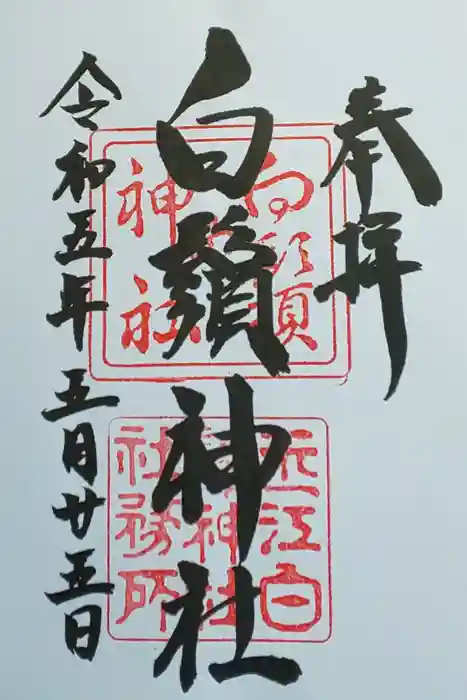 奉拝
白鬚神社
令和五年五月廿五日
白須
神社
近江白
神社
社務所